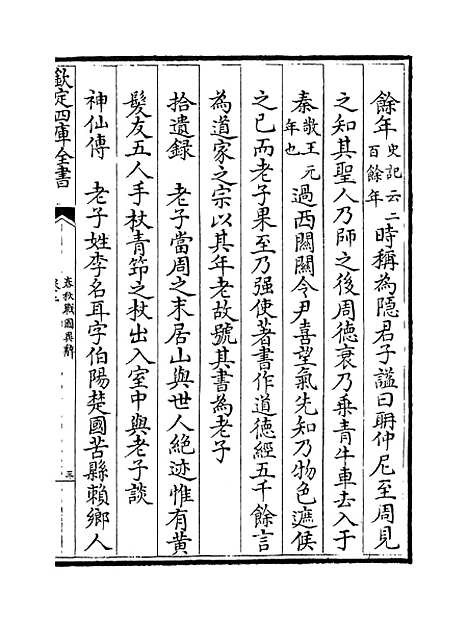 餘年史記云二百餘年時稱為隱君子諡曰聃仲尼至周見
之知其聖人乃師之後周德衰乃乗青牛車去入于
秦敬王元年也過西關關令尹喜望氣先知乃物色遮候
之已而老子果至乃强使著書作道德經五千餘言
為道家之宗以其年老故號其書為老子
拾遺録　老子當周之末居山與世人絶迹惟有黄
髮友五人手杖青筇之杖出入室中與老子談
神仙傳　老子姓李名耳字伯陽楚國苦縣賴鄉人
欽定四庫全書
春秋戰國異辭
三